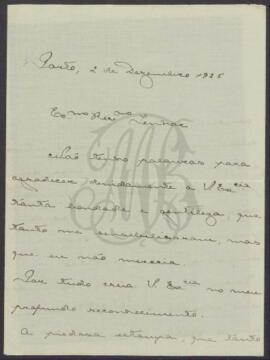 Porto, 2 de Dezembro 1925
Exmo Rev.mo Senhor
Não tenho palavras para
agradecer devidamente a V Excia
tanta bondade e gentileza, que
tanto me sensibilizaram, mas
que eu não merecia.
Por tudo creia V Excia no meu
profundo reconhecimento.
A piedosa estampa, que tanto